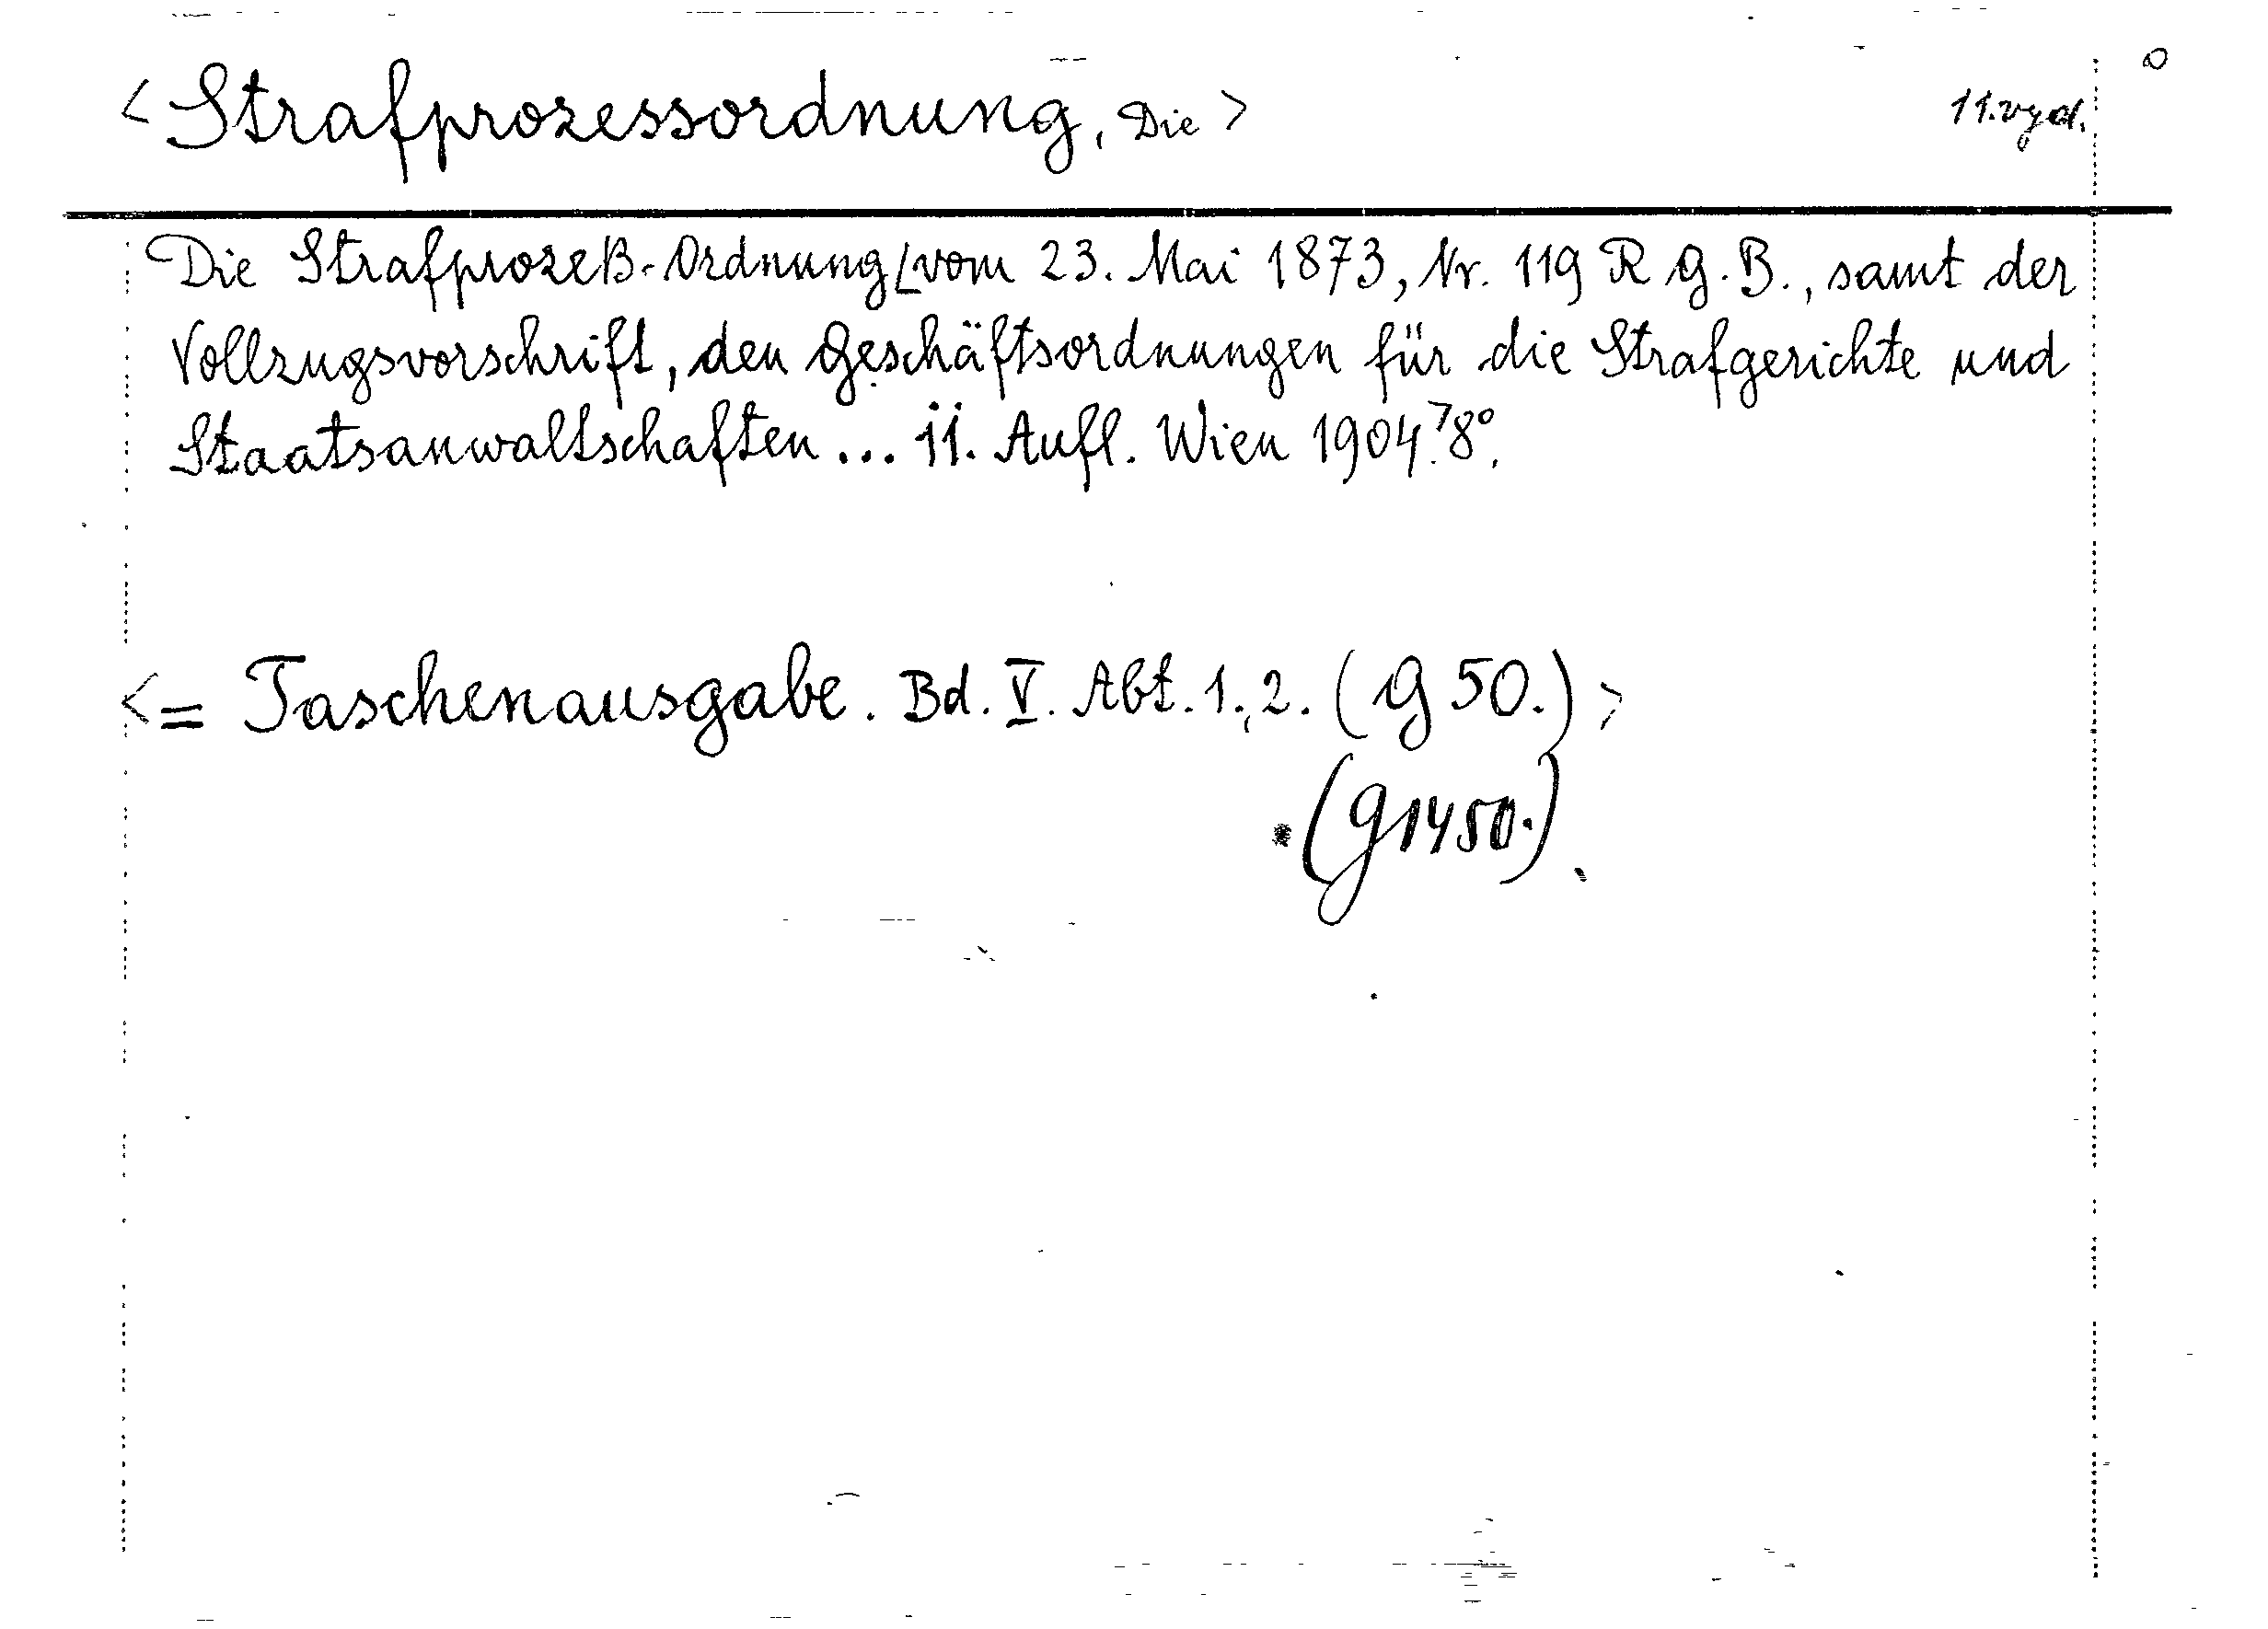 <Strafprozessordnung, Die> 11.vyd. 0
Die Strafprozeß-Ordnung/vom 23. Mai 1873, Nr. 119 R G. B., samt der
Vollzugsvorschrift, den Geschäftsordnungen für die Strafgerichte und
Staatsanwaltschaften... 11. Aufl. Wien 1904.>8°.
<= Taschenausgabe. Bd. V. Abt. 1., 2. (G 50.)>
(G1450.)